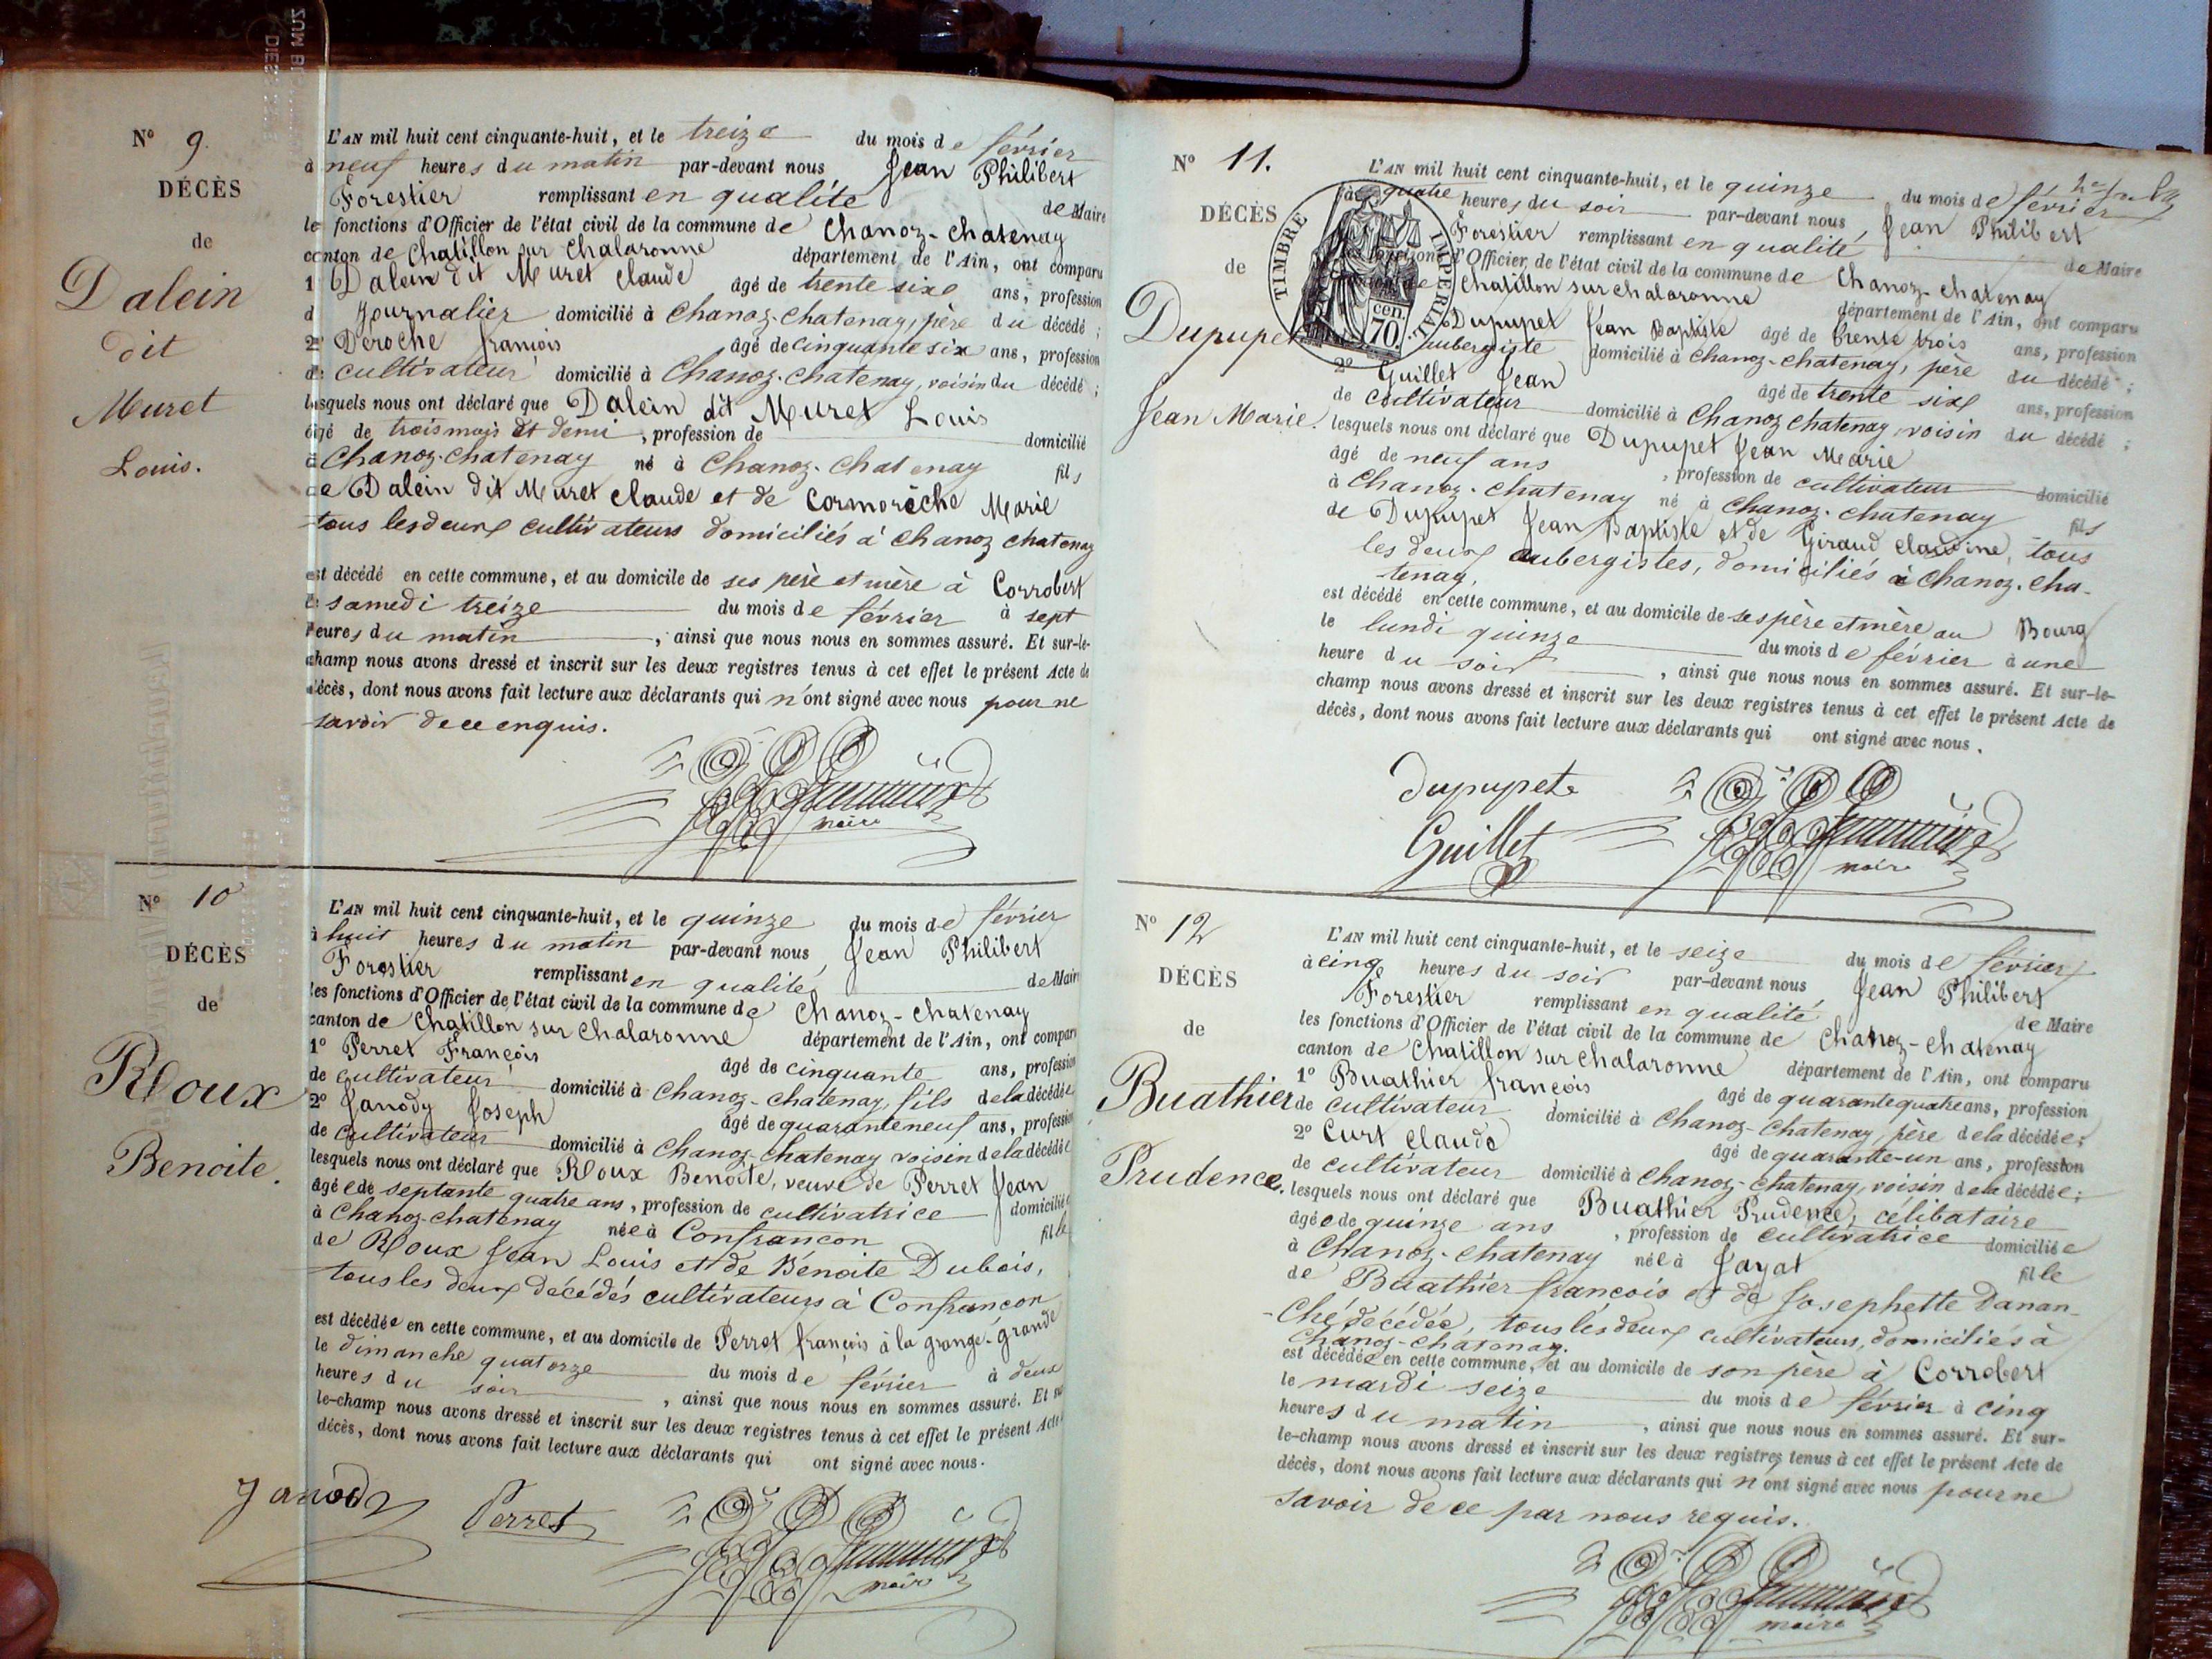 N° 9.
DÉCÈS
de
Dalein
dit
Muret
Louis.
L'AN mil huit cent cinquante-huit, et le treize du mois de février
à neuf heures du matin par-devant nous Jean Philibert
Forestier remplissant en qualité de Maire
les fonctions d'Officier de l'état civil de la commune de Chanoz-Chatenay
canton de Chatillon sur Chalaronne département de l'Ain, ont comparu
1° Dalein dit Muret Claude âgé de trente six ans, profession
d journalier domicilié à Chanoz-Chatenay, père du décédé ;
2° Deroche françois âgé de cinquante six ans, profession
de cultivateur domicilié à Chanoz-Chatenay, voisin du décédé ;
lesquels nous ont déclaré que Dalein dit Muret Louis
âgé de trois mois et demi, profession de domicilié
à Chanoz-Chatenay né à Chanoz-Chatenay fils
de Dalein dit Muret Claude et de Cormorèche Marie
tous les deux cultivateurs domiciliés à Chanoz Chatenay
est décédé en cette commune, et au domicile de ses père et mère à Corrobert
le samedi treize du mois de février à sept
heures du matin, ainsi que nous nous en sommes assuré. Et sur-le-
champ nous avons dressé et inscrit sur les deux registres tenus à cet effet le présent Acte de
décès, dont nous avons fait lecture aux déclarants qui n'ont signé avec nous pour ne
savoir de ce enquis.
maire
N° 10
DÉCÈS
de
Roux
Benoite.
L'AN mil huit cent cinquante-huit, et le quinze du mois de février
à huit heures du matin par-devant nous, Jean Philibert
Forestier remplissant en qualité de Maire
les fonctions d'Officier de l'état civil de la commune de Chanoz-Chatenay
canton de Chatillon sur Chalaronne département de l'Ain, ont comparu
1° Perret François âgé de cinquante ans, profession
de cultivateur domicilié à Chanoz-Chatenay, fils de la décédée
2° Janody Joseph âgé de quarante neuf ans, profession
de cultivateur domicilié à Chanoz-Chatenay voisin de la décédée
lesquels nous ont déclaré que Roux Benoîte, veuve de Perret Jean
âgée de septante quatre ans, profession de cultivatrice domiciliée
à Chanoz-Chatenay née à Confrancon fille
de Roux Jean Louis et de Benoite Dubois,
tous les deux décédés cultivateurs à Confrancon
est décédée en cette commune, et au domicile de Perret françois à la grange-grande
le dimanche quatorze du mois de février à deux
heures du soir, ainsi que nous nous en sommes assuré. Et sur
le-champ nous avons dressé et inscrit sur les deux registres tenus à cet effet le présent Acte
décès, dont nous avons fait lecture aux déclarants qui ont signé avec nous.
Janody Perret
maire
N° 11.
DÉCÈS
de
Dupupet
Jean Marie.
TIMBRE IMPERIAL
70 cen.
L'AN mil huit cent cinquante-huit, et le quinze du mois de février
à quatre heures du soir par-devant nous, Jean Philibert
Forestier remplissant en qualité de Maire
fonctions d'Officier de l'état civil de la commune de Chanoz-Chatenay
de Chatillon sur Chalaronne département de l'Ain, ont comparu
Dupupet Jean Baptiste âgé de trente trois ans, profession
aubergiste domicilié à Chanoz-Chatenay, père du décédé ;
2° Guillet Jean âgé de trente six ans, profession
de cultivateur domicilié à Chanoz Chatenay, voisin du décédé ;
lesquels nous ont déclaré que Dupupet Jean Marie
âgé de neuf ans, profession de cultivateur domicilié
à Chanoz-Chatenay né à Chanoz-Chatenay fils
de Dupupet Jean Baptiste et de Giraud Claudine, tous
les deux aubergistes, domiciliés à Chanoz-Cha-
tenay,
est décédé en cette commune, et au domicile de ses père et mère au Bourg
le lundi quinze du mois de février à une
heure du soir, ainsi que nous nous en sommes assuré. Et sur-le-
champ nous avons dressé et inscrit sur les deux registres tenus à cet effet le présent Acte de
décès, dont nous avons fait lecture aux déclarants qui ont signé avec nous.
Dupupet
Guillet
maire
N° 12
DÉCÈS
de
Buathier
Prudence.
L'AN mil huit cent cinquante-huit, et le seize du mois de février
à cinq heures du soir par-devant nous Jean Philibert
Forestier remplissant en qualité de Maire
les fonctions d'Officier de l'état civil de la commune de Chanoz-Chatenay
canton de Chatillon sur Chalaronne département de l'Ain, ont comparu
1° Buathier françois âgé de quarante quatre ans, profession
de cultivateur domicilié à Chanoz-Chatenay, père de la décédée ;
2° Curt Claude âgé de quarante-un ans, profession
de cultivateur domicilié à Chanoz-Chatenay, voisin de la décédée ;
lesquels nous ont déclaré que Buathier Prudence, célibataire
âgée de quinze ans, profession de cultivatrice domiciliée
à Chanoz-Chatenay née à Jayat fille
de Buathier francois et de Josephette Danan-
-ché décédée, tous les deux cultivateurs, domiciliés à
Chanoz-Chatenay.
est décédée en cette commune, et au domicile de son père à Corrobert
le mardi seize du mois de février à cinq
heures du matin, ainsi que nous nous en sommes assuré. Et sur-
le-champ nous avons dressé et inscrit sur les deux registres tenus à cet effet le présent Acte de
décès, dont nous avons fait lecture aux déclarants qui n'ont signé avec nous pour ne
savoir de ce par nous requis.
maire